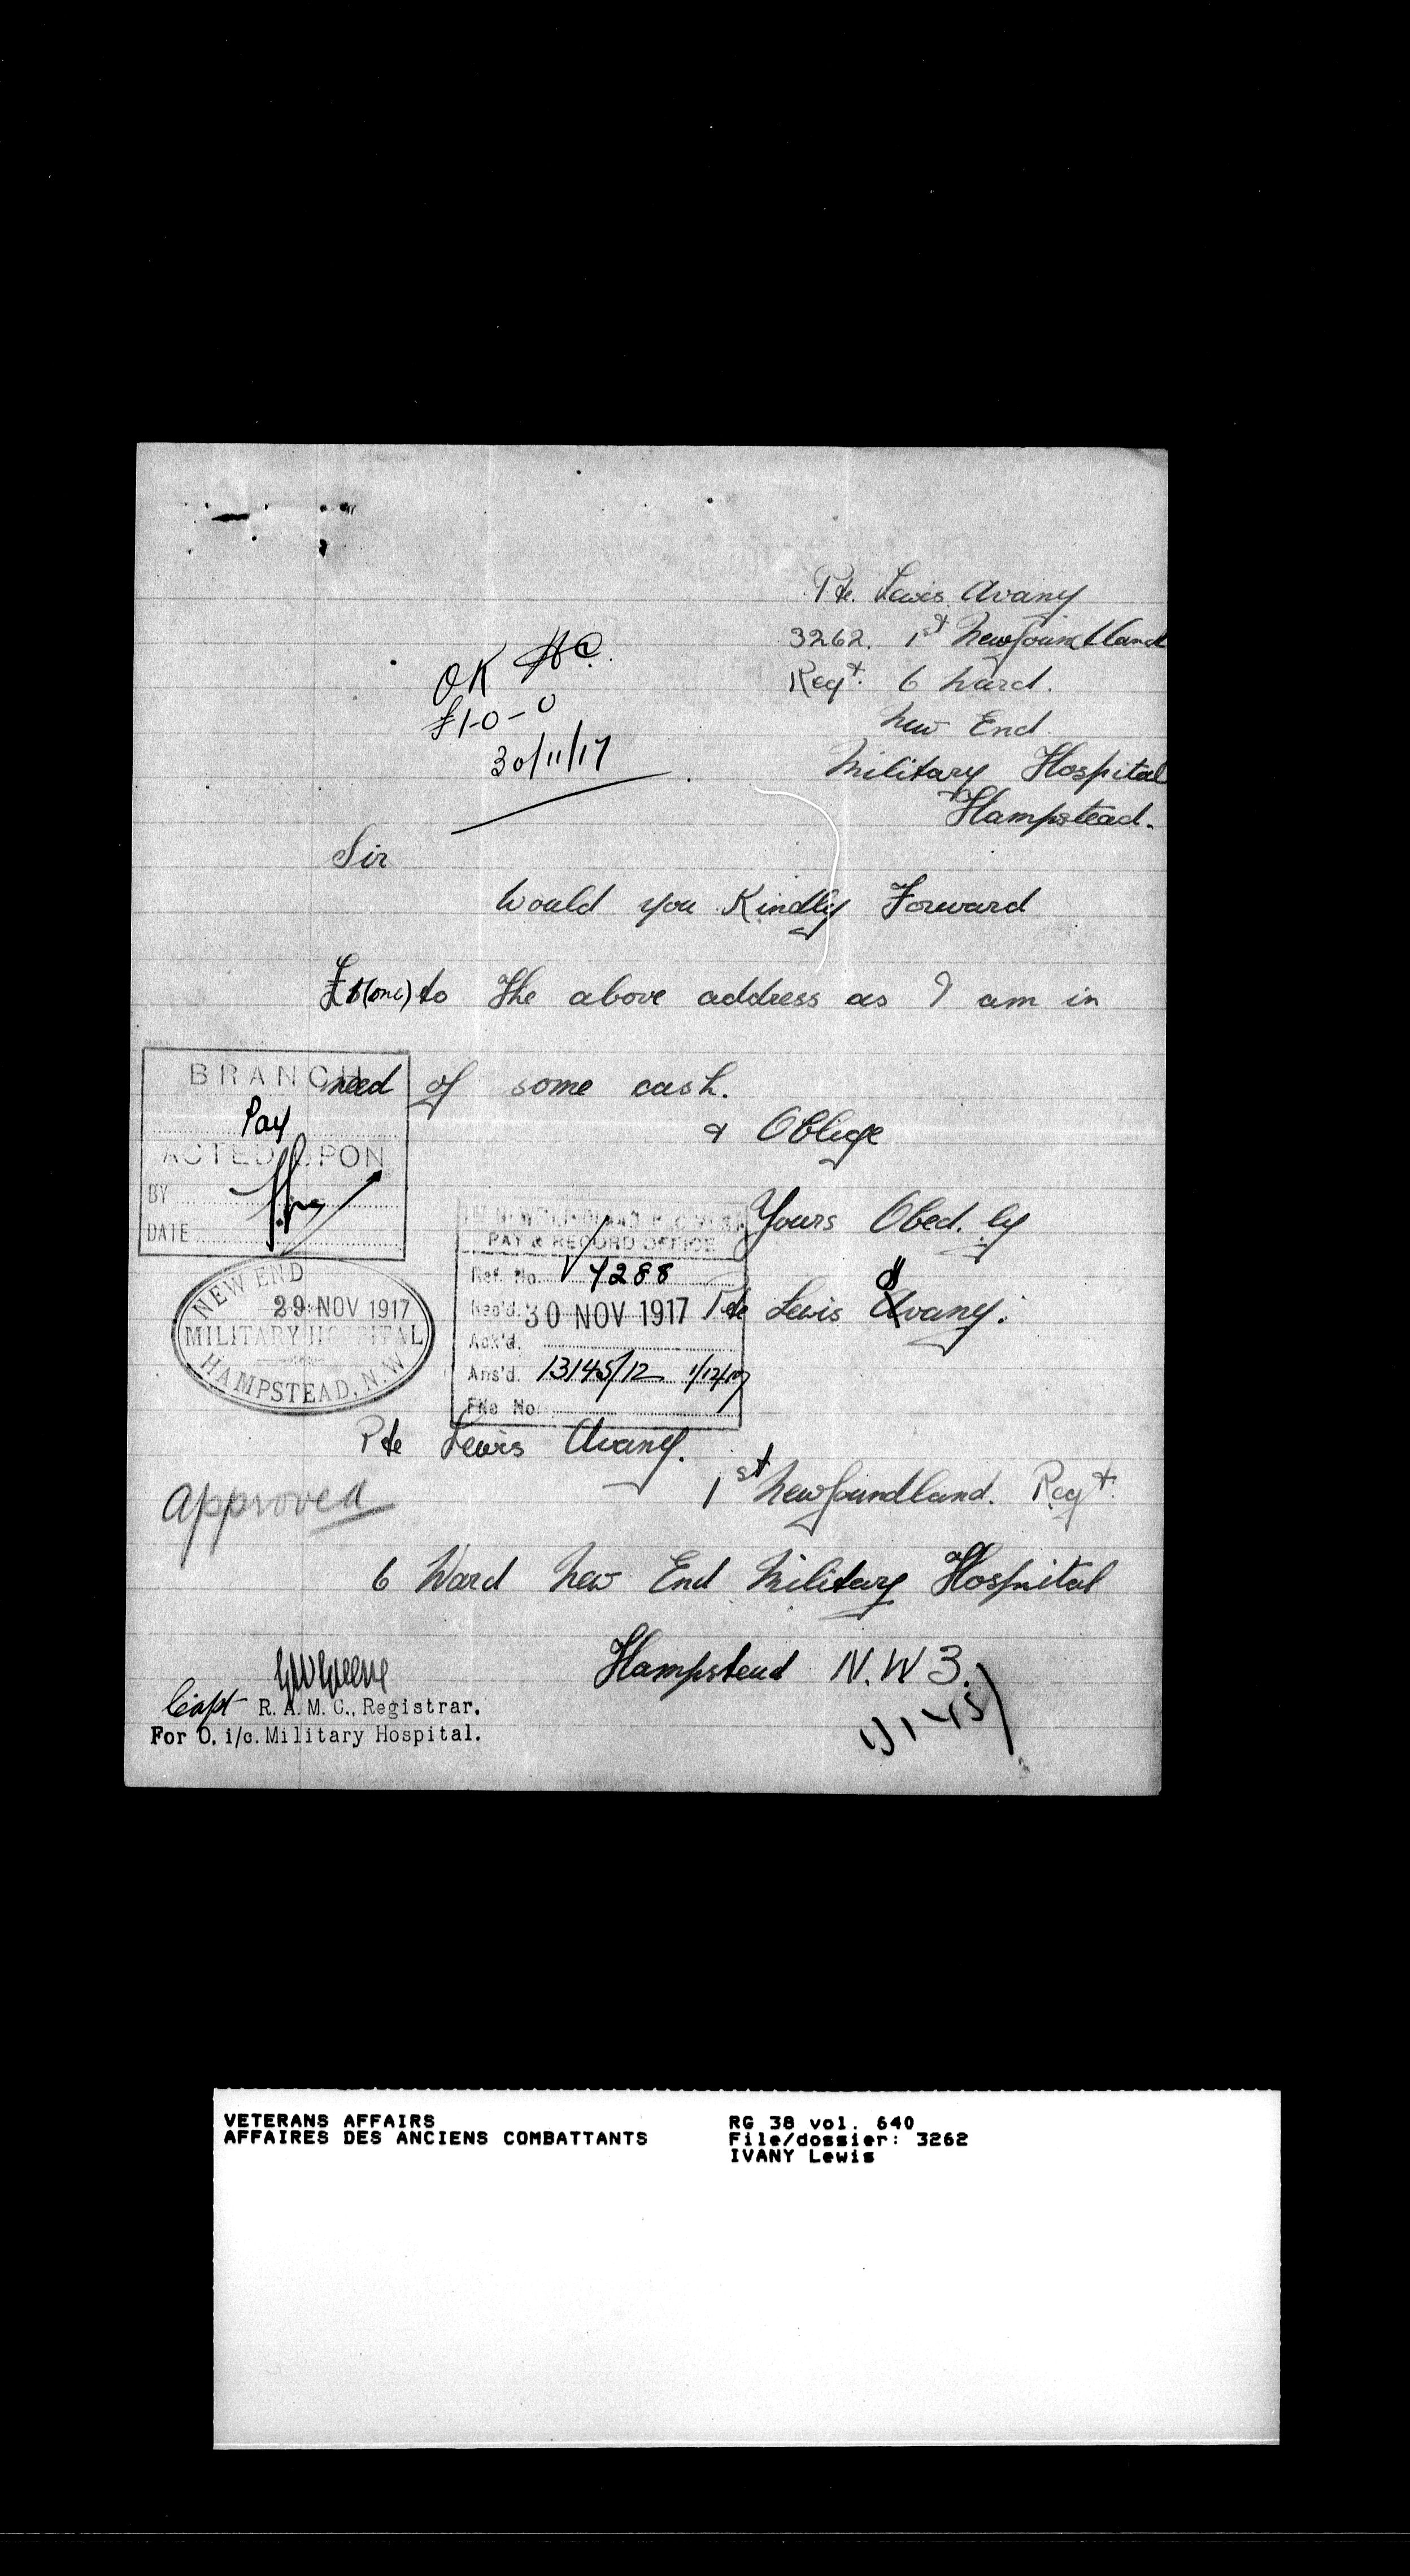 Pte. Lewis Avany
3262. 1st Newfoundland
Regt. 6 Ward.
New End
Military Hospital
Hampstead.
OK
£1-0-0
30/11/17
Sir
Would you Kindly Forward
£1 (one) to the above address as I am in
need of some cash.
& Oblige
Yours Obed. ly
Pte Lewis Avany.
BRANCH
Pay
ACTED UPON
BY
DATE
NEW END
29 NOV 1917
MILITARY HOSPITAL
HAMPSTEAD, N.W.
PAY & RECORD OFFICE
Ref. No. 7288
Rec'd. 30 NOV 1917
Ack'd.
Ans'd. 13145/12 1/12/17
File No.
Pte Lewis Avany.
1st Newfoundland. Regt.
Approved
6 Ward New End Military Hospital
Hampstead N.W 3.
13145
Capt R. A. M. C., Registrar.
For O. i/c. Military Hospital.
VETERANS AFFAIRS
AFFAIRES DES ANCIENS COMBATTANTS
RG 38 vol. 640
File/dossier: 3262
IVANY Lewis